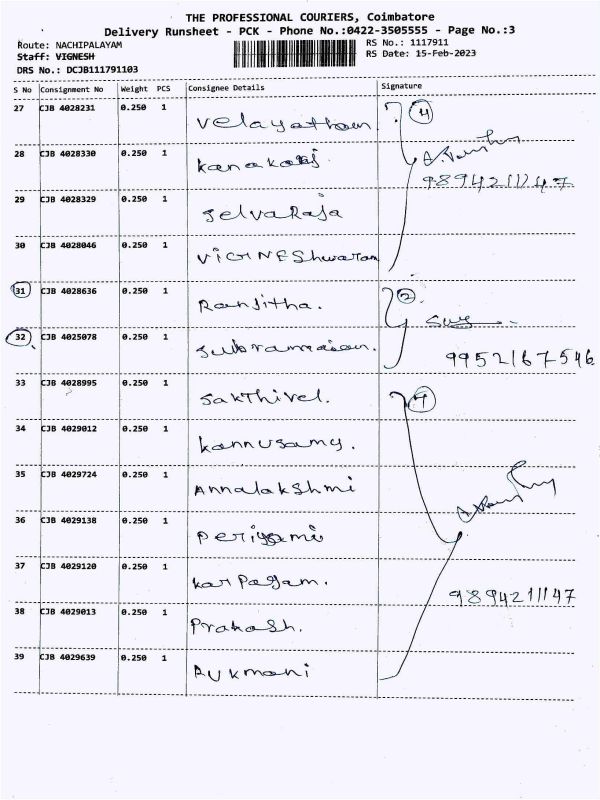 THE PROFESSIONAL COURIERS, Coimbatore
Delivery Runsheet - PCK - Phone No.:0422-3505555 - Page No.:3
Route: NACHIPALAYAM
RS No.: 1117911
Staff: VIGNESH
RS Date: 15-Feb-2023
DRS No.: DCJB111791103
S No Consignment No Weight PCS Consignee Details Signature
27 CJB 4028231 0.250 1 Velayatham 4
28 CJB 4028330 0.250 1
9894211147
29 CJB 4028329 0.250 1 SelvaRaja
30 CJB 4028046 0.250 1 VIGNEShwaran
31 CJB 4028636 0.250 1 Ranjitha. 2
32 CJB 4025078 0.250 1 Subramanian.
9952167546
33 CJB 4028995 0.250 1 SakThivel. 7
34 CJB 4029012 0.250 1 Kannusamy.
35 CJB 4029724 0.250 1 Annalakshmi
36 CJB 4029138 0.250 1
37 CJB 4029120 0.250 1 Karpagam.
9894211147
38 CJB 4029013 0.250 1 Prakash.
39 CJB 4029639 0.250 1 Rukmani